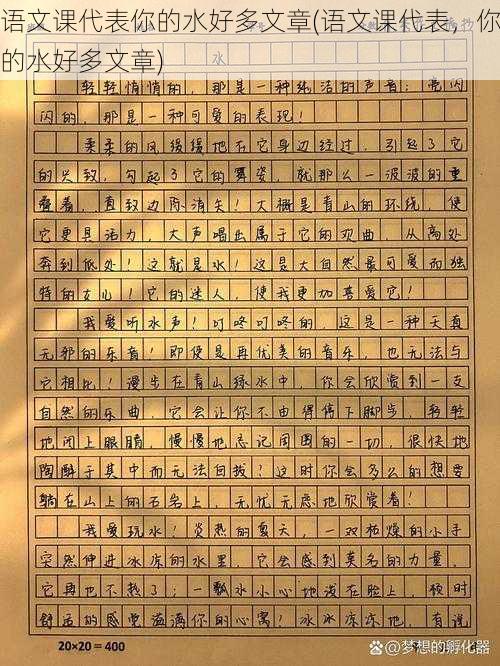 语文课代表你的水好多文章(语文课代表，你
的水好多文章)
水
轻轻悄悄的，那是一种纯洁的声音；亮闪
闪的，那是一种可爱的表现！
柔柔的风缓缓地在它身边经过，引起了它
的兴致，勾起了它的舞姿，就那么一波波的重
叠着，直致边际消失！大概是青山的环绕，使
它更具活力，大声唱出属于它的欢曲，从高处
奔到低处！这就是水！这是大自然最可爱而独
特的女儿！它的迷人，使我更加喜爱它！
我爱听水声！叮咚叮咚的，这是一种天真
无邪的乐音！即使是再优美的音乐，也无法与
它相比！漫步在青山绿水中，你会欣赏到一支
自然的乐曲，它会让你不由得停下脚步，轻轻
地闭上眼睛，慢慢地忘记周围的一切，很快地
陶醉于其中而无法回拔！这时你会多么的想要
躺在山上的石岩上，无忧无虑地欣赏着！
我爱玩水！炎热的夏天，一双枯燥的小手
突然伸进冰冻的水里，它会感到莫名的力量，
它再也不耗了；一瓢水小心地泼在脸上，顿时
舒适的感觉溢满你的心窝！冰冰冻冻地，有说
20×20=400
@梦想的孵化器